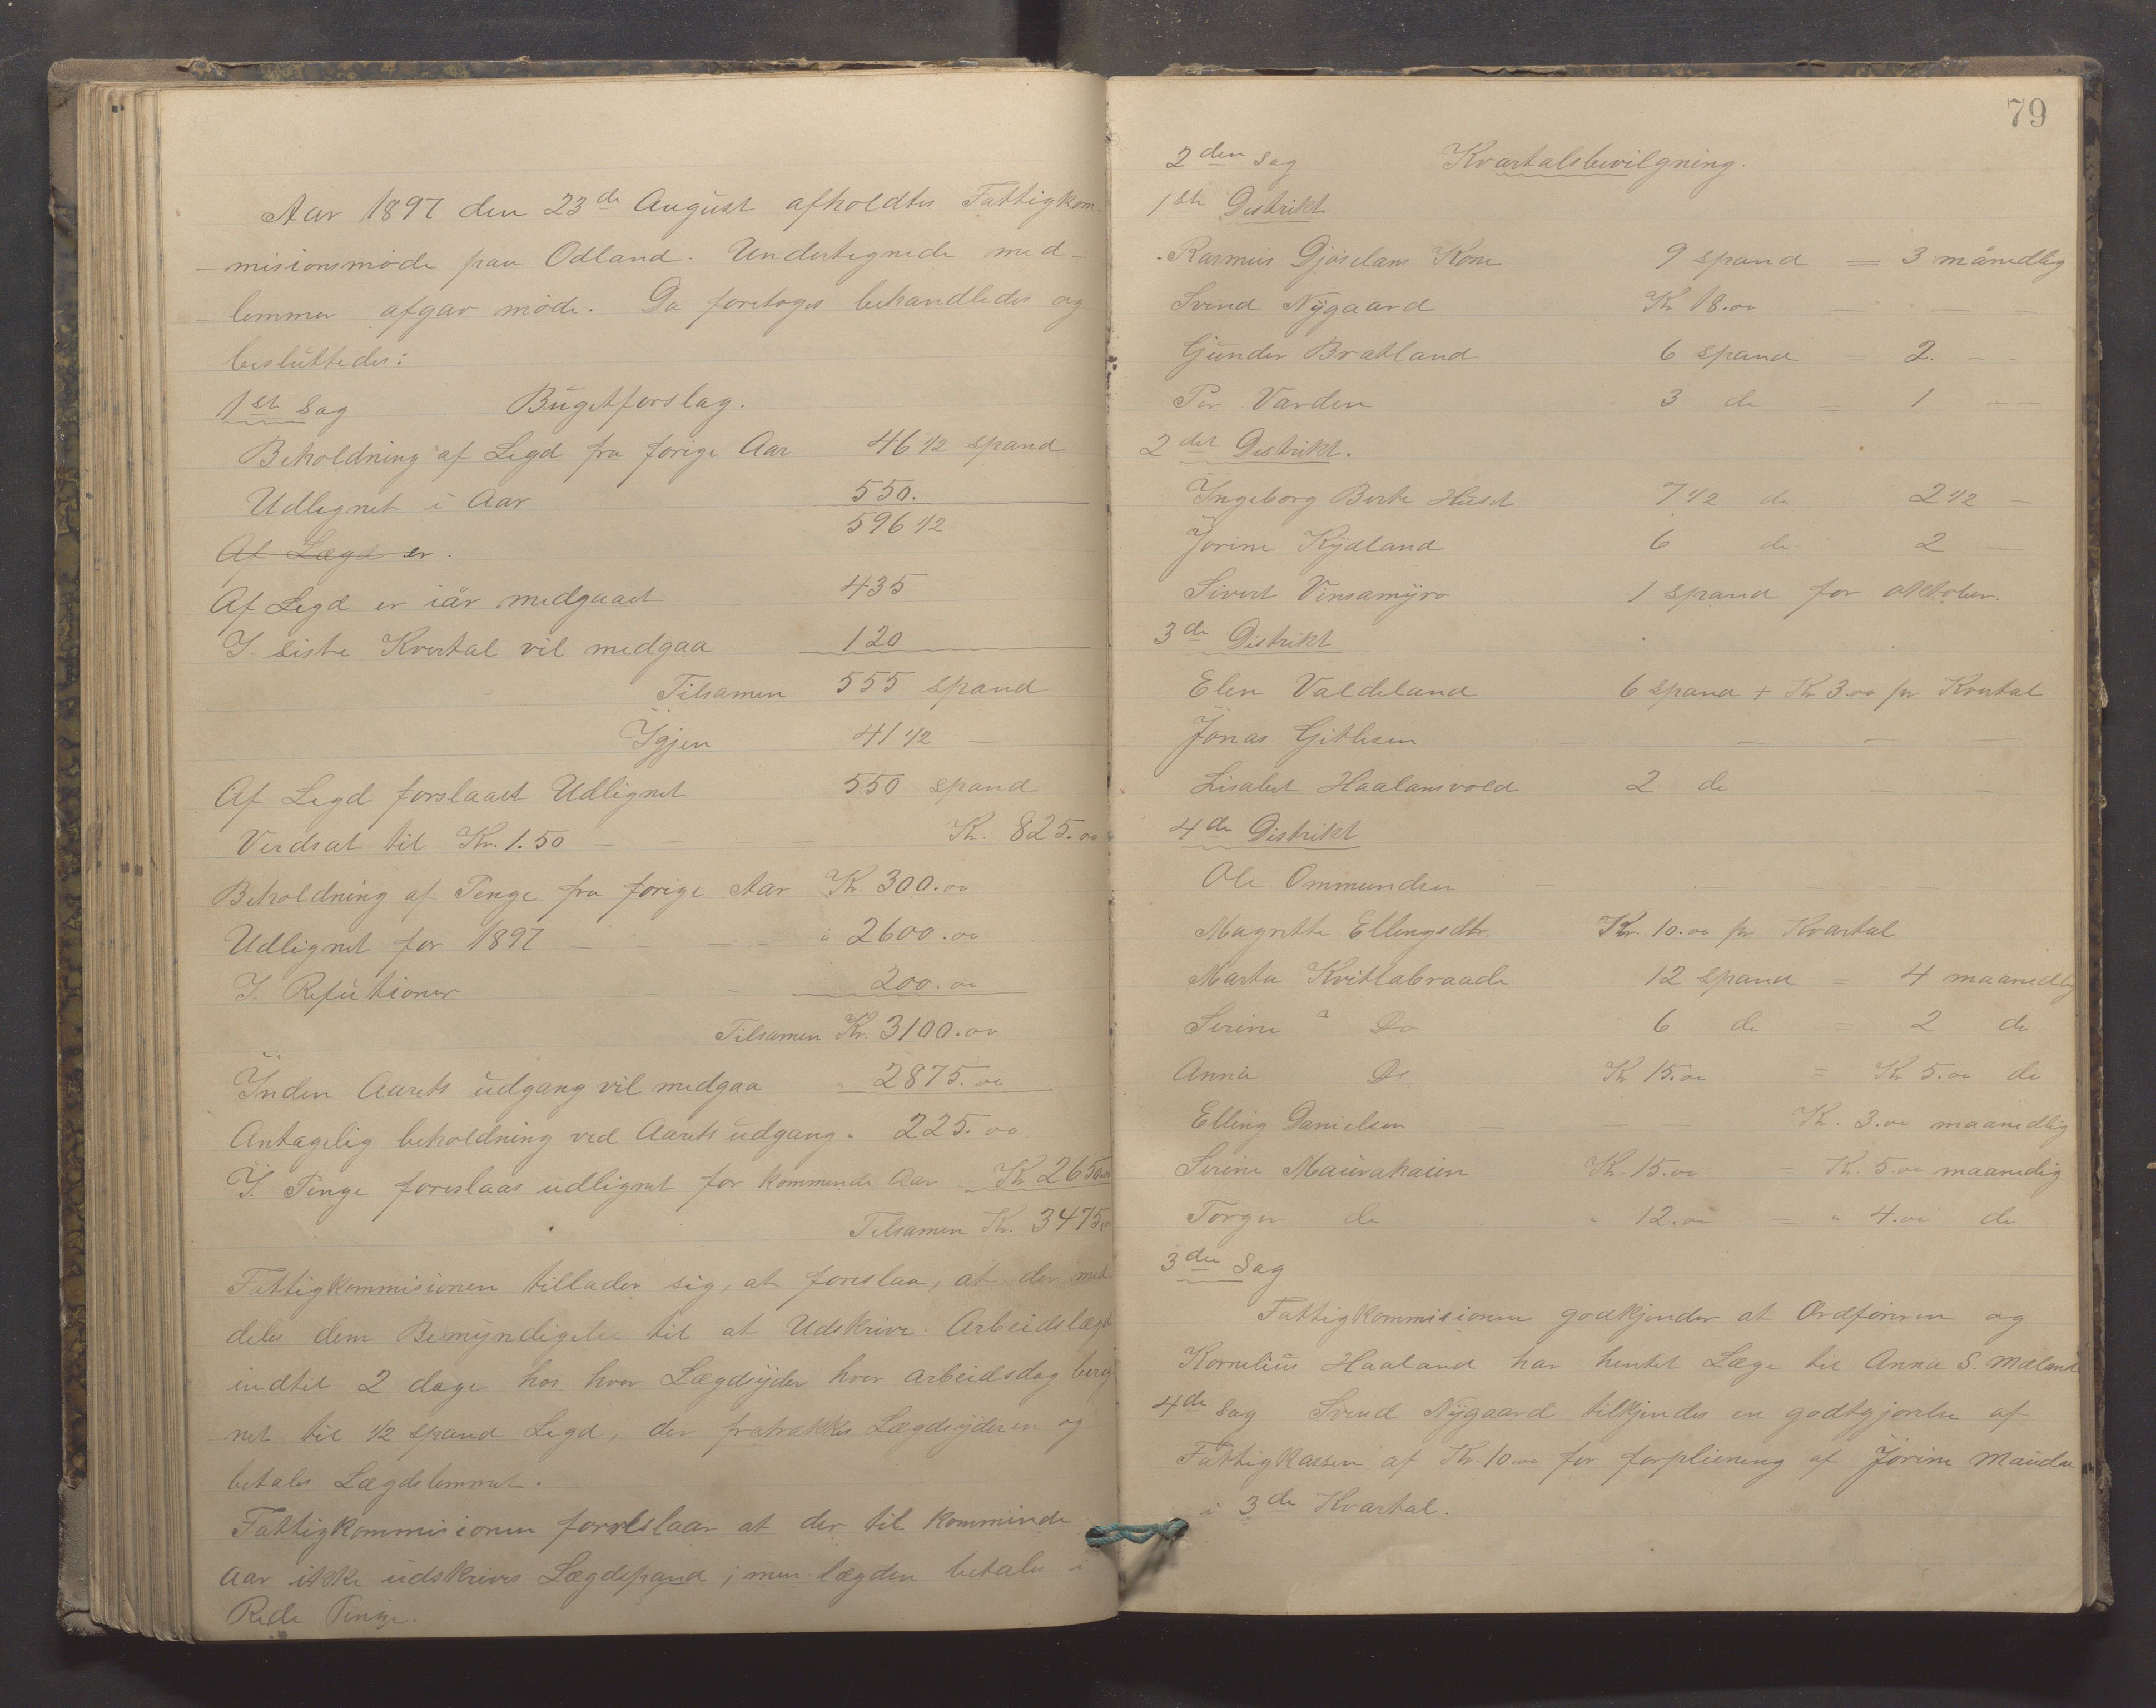 Aar 1897 den 23de August afholdtes Fattigkom-
-misionsmøde paa Odland. Undertegnede med-
lemmer afgav møde. Da foretoges behandledes og
besluttedes:
1ste Sag Bugetforslag.
Beholdning af Legd fra forige Aar 46 1/2 spand
Udlignet i Aar 550.
596 1/2
Af Lægd er.
Af Legd er iår medgaaet 435
I. siste Kvertal vil medgaa 120
Tilsamen 555 spand
Igjen 41 1/2 —
Af Legd forslaaet Udlignet 550 spand
Verdsat til Kr. 1.50 — — — Kr. 825.00
Beholdning af Penge fra forige Aar Kr. 300.00
Udlignet for 1897 — — — — " 2600.00
I. Refutioner — — 200.00
Tilsamen Kr. 3100.00
Inden Aarets udgang vil medgaa " 2875.00
Antagelig beholdning ved Aarets udgang " 225.00
I. Penge foreslaas udlignet for kommende Aar Kr 2650.00
Tilsamen Kr. 3475.00
Fattigkommisionen tillader sig, at foreslaa, at der med-
deles dem Bemyndigelse til at Udskrive Arbeidslægd
indtil 2 dage hos hver Lægdsyder hver arbeidsdag bereg
net til 1/2 spand Legd, der fratrækkes Lægdsyderen og
betales Lægdslemmet.
Fattigkommisionen foreslaar at der til komminde
Aar ikke udskrives Lægdspand; men lægden betales i
Rede Penge.
79
2den Sag Kvartalsbevilgning.
1ste Distrikt
Rasmus Gjøselans Kone 9 spand = 3 månedlig
Svend Nygaard Kr 18.00 — — —
Gunder Bratland 6 spand = 2. — —
Per Varden 3 do = 1 — —
2det Distrikt.
Ingeborg Berte Huset 7 1/2 do 2 1/2 —
Jorine Kydland 6 do 2 —
Sivert Vinsamyro 1 spand for oktober.
3de Distrikt
Elen Valdeland 6 spand + Kr 3.00 pr Kvertal
Jonas Gitlesen — — — —
Lisabet Haalansvold 2 do — —
4de Distrikt
Ole Ommundsen — — —
Magrethe Ellingsdtr. Kr. 10.00 pr Kvartal
Marta Kvitlabraade 12 spand = 4 maanedlig
Serine " Do 6 do = 2 do
Anna Do Kr 15.00 = Kr 5.00 do
Elling Danielsen — — Kr. 3.00 maanedlig
Serine Maurahaien Kr. 15.00 = Kr. 5.00 maanedlig
Torger do " 12.00 = " 4.00 do
3die Sag
Fattigkommisionen godkjender at Ordføreren og
Kornelius Haaland har hentet Læge til Anna S. Mæland
4de Sag Svend Nygaard tilkjendes en godtgjørelse af
Fattigkassen af Kr. 10.00 for forpliening af Jorine Maudal
i 3de Kvartal.